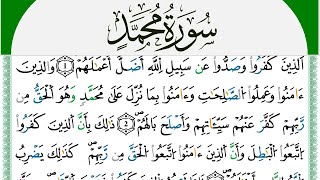 سُورَةُ مُحَمَّدٍ
ٱلَّذِينَ كَفَرُوا۟ وَصَدُّوا۟ عَن سَبِيلِ ٱللَّهِ أَضَلَّ أَعْمَٰلَهُمْ ١ وَٱلَّذِينَ
ءَامَنُوا۟ وَعَمِلُوا۟ ٱلصَّٰلِحَٰتِ وَءَامَنُوا۟ بِمَا نُزِّلَ عَلَىٰ مُحَمَّدٍ وَهُوَ ٱلْحَقُّ مِن
رَّبِّهِمْ كَفَّرَ عَنْهُمْ سَيِّـَٔاتِهِمْ وَأَصْلَحَ بَالَهُمْ ٢ ذَٰلِكَ بِأَنَّ ٱلَّذِينَ كَفَرُوا۟
ٱتَّبَعُوا۟ ٱلْبَٰطِلَ وَأَنَّ ٱلَّذِينَ ءَامَنُوا۟ ٱتَّبَعُوا۟ ٱلْحَقَّ مِن رَّبِّهِمْ كَذَٰلِكَ يَضْرِبُ